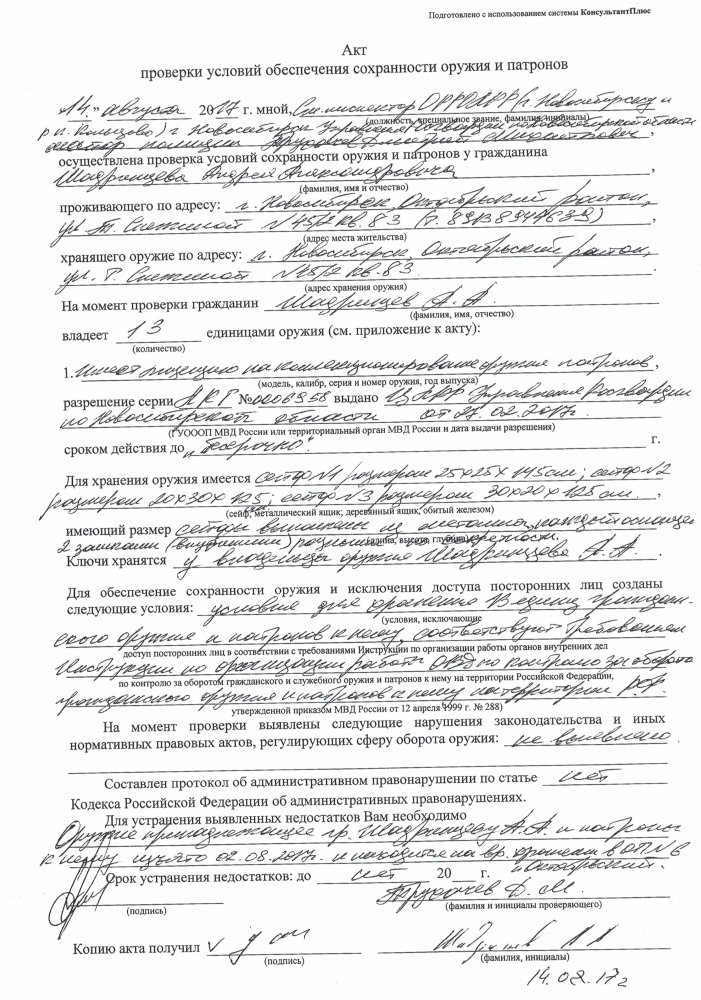 Подготовлено с использованием системы КонсультантПлюс
Акт
проверки условий обеспечения сохранности оружия и патронов
"14" августа 2017 г. мной, Ст. инспектор ОЛРР (г. Новосибирску и
(должность, специальное звание, фамилия, инициалы)
р.п. Кольцово) г. Новосибирск Управления Росгвардии по Новосибирской области
майор полиции Дмитрий
осуществлена проверка условий сохранности оружия и патронов у гражданина
Шадринцева Андрея Александровича,
(фамилия, имя и отчество)
проживающего по адресу: г. Новосибирск, Октябрьский район,
ул. Т. Снежиной №45/2 кв. 83 (т. 89138947639),
(адрес места жительства)
хранящего оружие по адресу: г. Новосибирск, Октябрьский район,
ул. Т. Снежиной №45/2 кв. 83.
(адрес хранения оружия)
На момент проверки гражданин Шадринцев А. А.
(фамилия, имя, отчество)
владеет 13 единицами оружия (см. приложение к акту):
(количество)
1. Имеет лицензию на коллекционирование оружия патронов,
(модель, калибр, серия и номер оружия, год выпуска)
разрешение серии ЛКГ №0006958 выдано ЦЛРР Управления Росгвардии
по Новосибирской области от 27.02.2017г.
(ГУОООП МВД России или территориальный орган МВД России и дата выдачи разрешения)
сроком действия до "бессрочно" г.
Для хранения оружия имеется сейф №1 размером 25х25х145см; сейф №2
размером 20х30х125; сейф №3 размером 30х20х125см.,
(сейф, металлический ящик; деревянный ящик, обитый железом)
имеющий размер сейфы выполнены из металла, каждый оснащен
(длина, высота, глубина)
2 замками (внутренними) различной секретности.
Ключи хранятся у владельца оружия Шадринцева А. А.
Для обеспечение сохранности оружия и исключения доступа посторонних лиц созданы
следующие условия: условия для хранения 13 единиц граждан-
(условия, исключающие
ского оружия и патронов к нему, соответствуют требованиям
доступ посторонних лиц в соответствии с требованиями Инструкции по организации работы органов внутренних дел
Инструкции по организации работы ОВД по контролю за оборотом
по контролю за оборотом гражданского и служебного оружия и патронов к нему на территории Российской Федерации,
гражданского оружия и патронов к нему на территории РФ
утвержденной приказом МВД России от 12 апреля 1999 г. № 288)
На момент проверки выявлены следующие нарушения законодательства и иных
нормативных правовых актов, регулирующих сферу оборота оружия: не выявлено.
Составлен протокол об административном правонарушении по статье нет
Кодекса Российской Федерации об административных правонарушениях.
Для устранения выявленных недостатков Вам необходимо
Оружие принадлежащее гр. Шадринцеву А.А. и патроны
к нему изъято 02.08.2017г. и находится на вр. хранении в ОП №6
"Октябрьский".
Срок устранения недостатков: до нет 20 г.
Д. М.
(подпись)
(фамилия и инициалы проверяющего)
Копию акта получил
(подпись)
(фамилия, инициалы)
14.08.17г